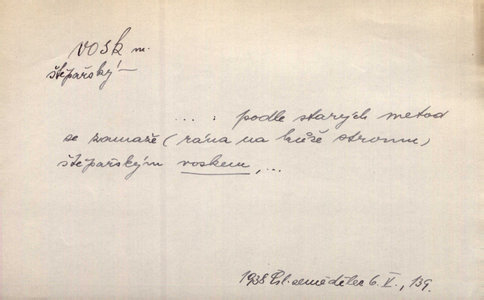 vosk m.
štěpařský –
... : podle starých metod
se zamaže (rána na kůře stromu)
štěpařským voskem,...
1938 Čsl. zemědělec 6. V., 139.